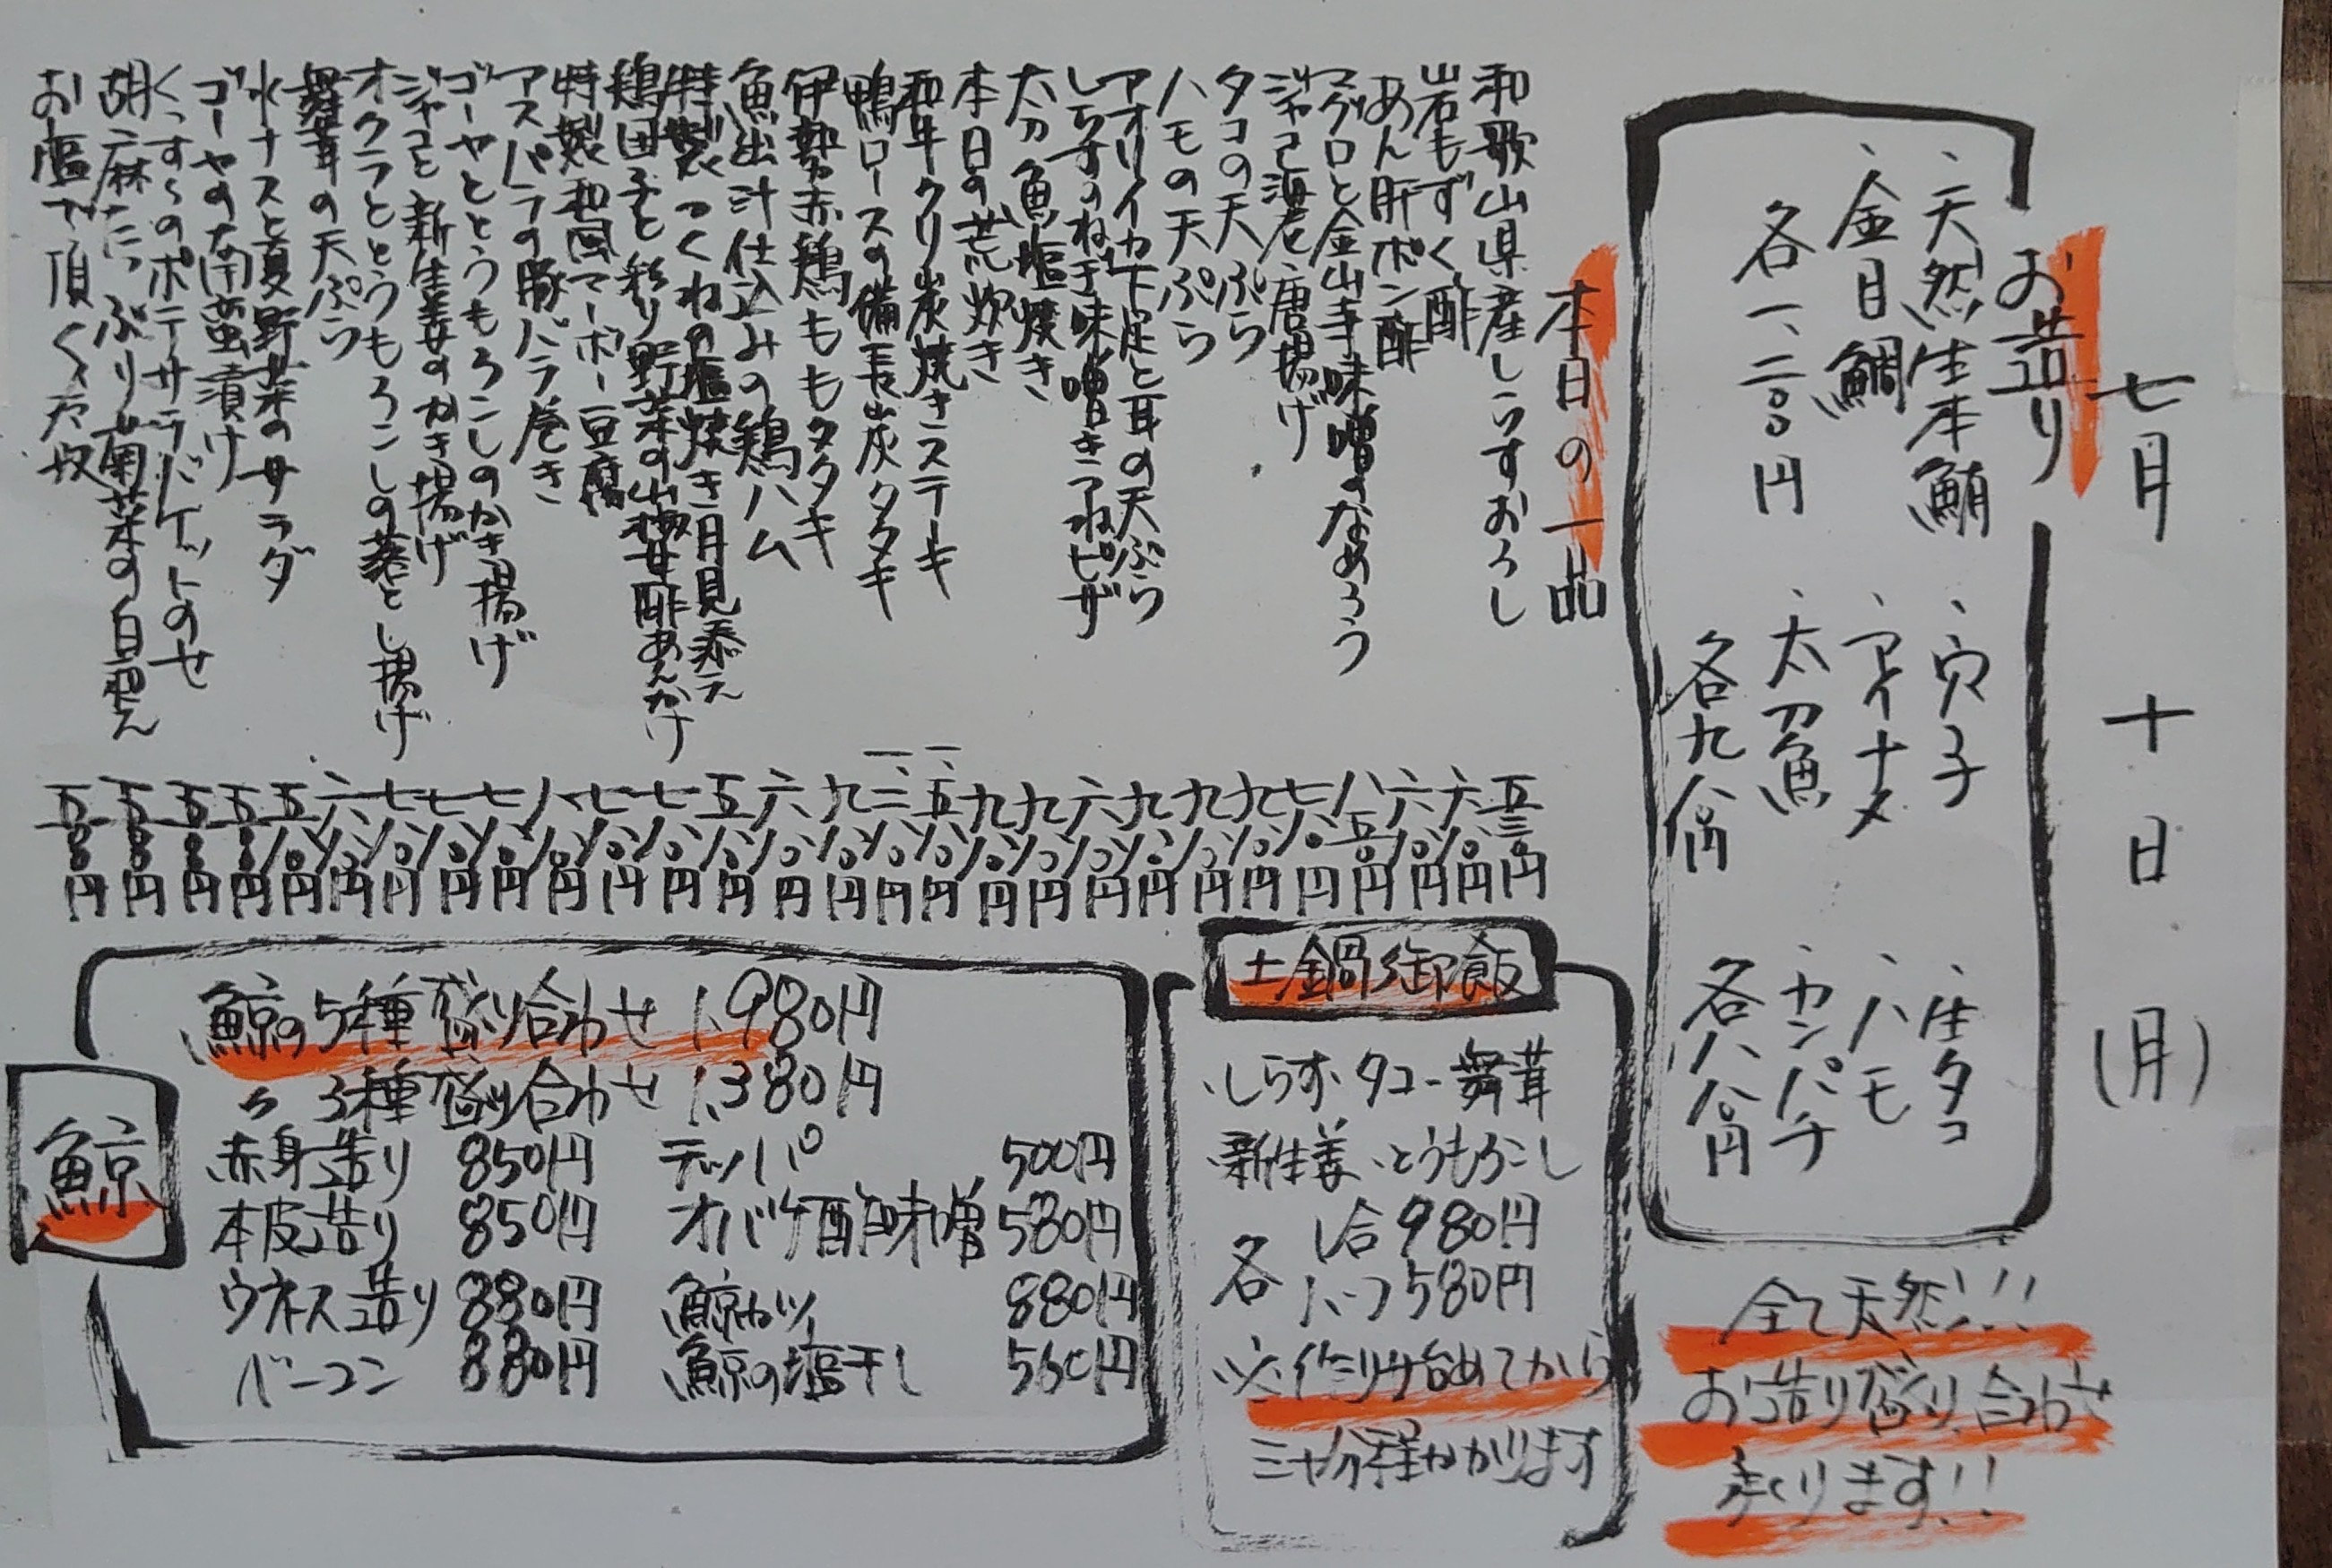 七月十日(月)
お造り
、天然生本鮪
、金目鯛
各一、二〇〇円
、穴子
、アイナメ
、太刀魚
各九八〇円
、生タコ
、ハモ
、カンパチ
各八八〇円
全て天然!!!
お造り盛り合わせ
承ります!!
本日の一品
和歌山県産しらすおろし 五三〇円
岩もずく酢 六八〇円
あん肝ポン酢 六八〇円
マグロと金山寺味噌のなめろう 八五〇円
ジャコ海老唐揚げ 七八〇円
タコの天ぷら 九八〇円
ハモの天ぷら 九八〇円
アオリイカ下足と耳の天ぷら 九八〇円
しらすのねぎ味噌きつねピザ 六八〇円
太刀魚塩焼き 九八〇円
本日の荒炊き 九八〇円
和牛クリ炭焼きステーキ 一、五八〇円
鴨ロースの備長炭タタキ 一、二八〇円
伊勢赤鶏ももタタキ 九八〇円
魚出汁仕込みの鶏ハム 六八〇円
特製つくねの塩焼き月見添え 五八〇円
鶏団子と彩り野菜の山椒甘酢あんかけ 七八〇円
特製和風マーボー豆腐 七八〇円
アスパラの豚バラ巻き 八八〇円
ゴーヤととうもろこしのかき揚げ 七八〇円
ジャコと新生姜のかき揚げ 七八〇円
オクラととうもろこしの落とし揚げ 七八〇円
舞茸の天ぷら 六八〇円
水ナスと夏野菜のサラダ 五八〇円
ゴーヤの南蛮漬け 五八〇円
くっす〜のポテサラバケットのせ 五八〇円
胡麻たっぷり菊菜の白和え 五八〇円
お塩で頂く冷奴 五八〇円
土鍋御飯
、しらす、タコ、舞茸
、新生姜、とうもろこし
各 1合980円
ハーフ580円
※作り始めてから
三十分程かかります
鯨
、鯨の5種盛り合わせ 1,980円
〃 3種盛り合わせ 1,380円
赤身造り 850円 テッパ 500円
本皮造り 850円 オバケ酢味噌 580円
ウネス造り 880円 鯨カツ 880円
ベーコン 880円 鯨の塩干し 560円